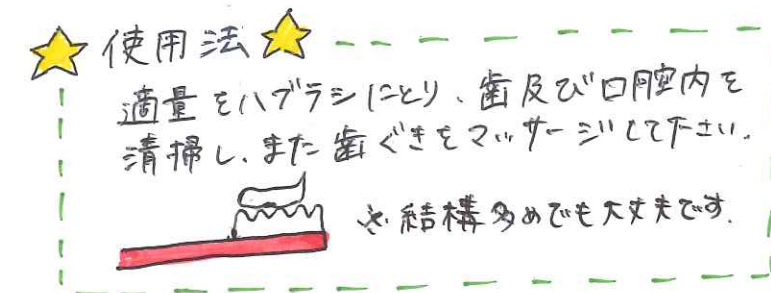 使用法
適量をハブラシにとり、歯及び口腔内を
清掃し、また歯ぐきをマッサージして下さい。
※結構多めでも大丈夫です。